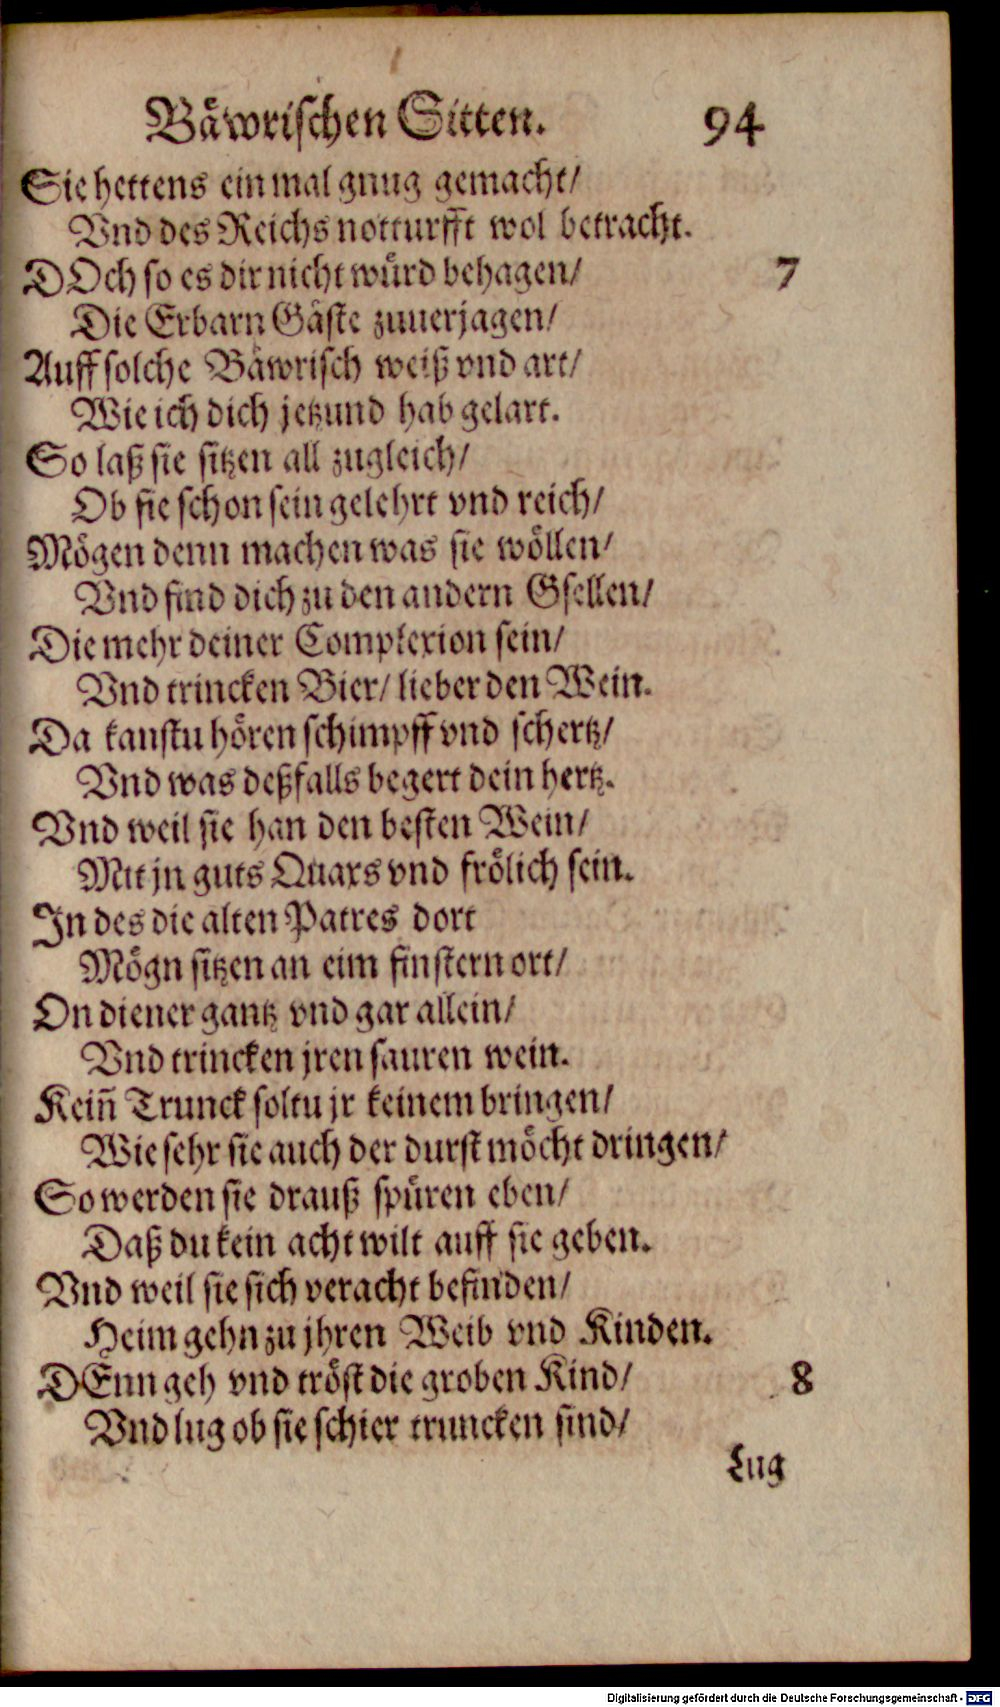 Bäwrischen Sitten. 94
Sie hettens ein mal gnug gemacht/
Vnd des Reichs notturfft wol betracht.
DOch so es dir nicht würd behagen/ 7
Die Erbarn Gäste zuuerjagen/
Auff solche Bäwrisch weiß vnd art/
Wie ich dich jetzund hab gelart.
So laß sie sitzen all zugleich/
Ob sie schon sein gelehrt vnd reich/
Mögen denn machen was sie wöllen/
Vnd find dich zu den andern Gsellen/
Die mehr deiner Complexion sein/
Vnd trincken Bier/ lieber den Wein.
Da kanstu hören schimpff vnd schertz/
Vnd was deßfalls begert dein hertz.
Vnd weil sie han den besten Wein/
Mit jn guts Quaxs vnd frölich sein.
In des die alten Patres dort
Mögn sitzen an eim finstern ort/
On diener gantz vnd gar allein/
Vnd trincken jren sauren wein.
Keiñ Trunck soltu jr keinem bringen/
Wie sehr sie auch der durst möcht dringen/
So werden sie drauß spüren eben/
Daß du kein acht wilt auff sie geben.
Vnd weil sie sich veracht befinden/
Heim gehn zu jhren Weib vnd Kinden.
DEnn geh vnd tröst die groben Kind/ 8
Vnd lug ob sie schier truncken sind/
Lug
Digitalisierung gefördert durch die Deutsche Forschungsgemeinschaft - DFG